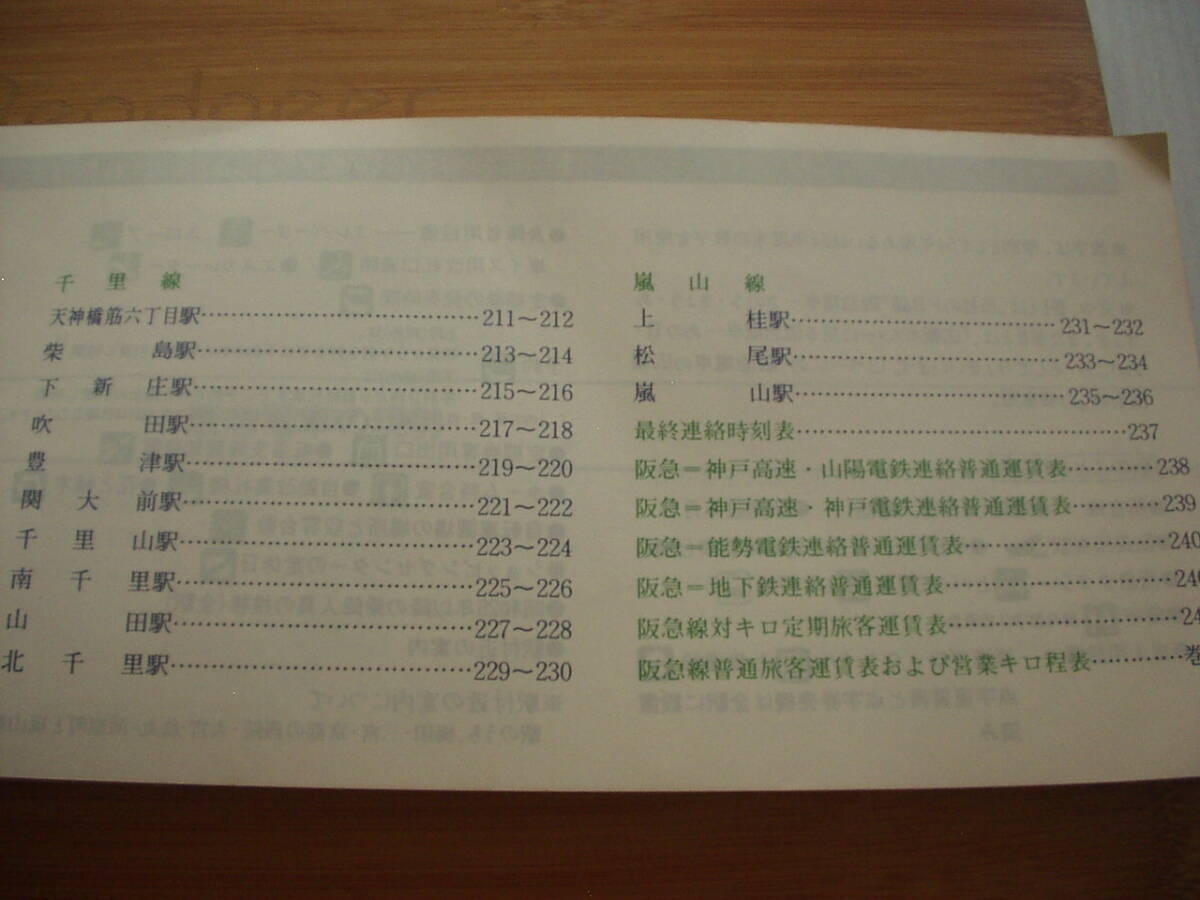 千里線
天神橋筋六丁目駅……………………211〜212
柴島駅……………………213〜214
下新庄駅……………………215〜216
吹田駅……………………217〜218
豊津駅……………………219〜220
関大前駅……………………221〜222
千里山駅……………………223〜224
南千里駅……………………225〜226
山田駅……………………227〜228
北千里駅……………………229〜230
嵐山線
上桂駅……………………231〜232
松尾駅……………………233〜234
嵐山駅……………………235〜236
最終連絡時刻表……………………237
阪急＝神戸高速・山陽電鉄連絡普通運賃表…………238
阪急＝神戸高速・神戸電鉄連絡普通運賃表…………239
阪急＝能勢電鉄連絡普通運賃表……………………240
阪急＝地下鉄連絡普通運賃表……………………24
阪急線対キロ定期旅客運賃表……………………24
阪急線普通旅客運賃表および営業キロ程表…………巻